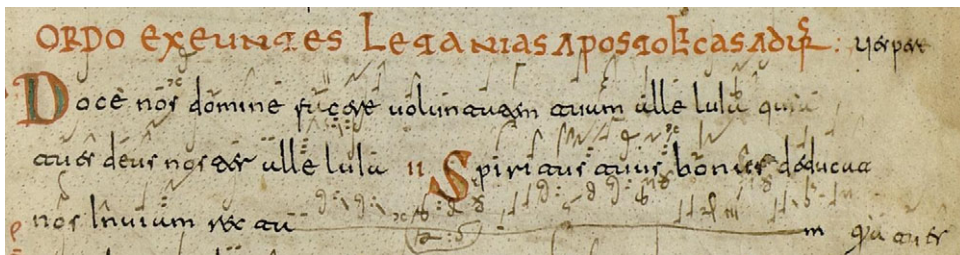 ORDO EXEUNTES LETANIAS APOSTOLICAS
Doce nos domine facere voluntatem tuam alleluia quia
tu es deus noster alleluia II Spiritus tuus bonus deducat
nos in viam recta m Quia tu es